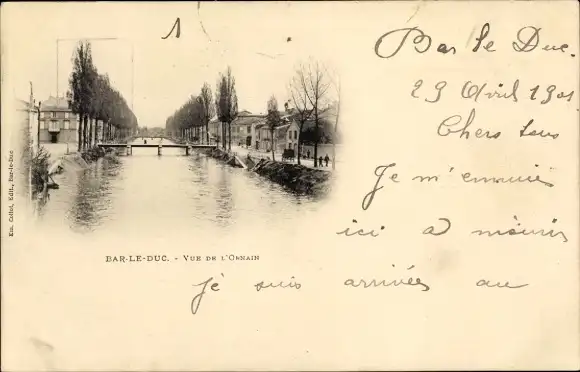 1
Bar le Duc.
29 Avril 1901
Chers tous
Je m'ennuie
ici a mourir
BAR-LE-DUC. - VUE DE L'ORNAIN
je suis arrivée au
Em. Collot, Edit., Bar-le-Duc